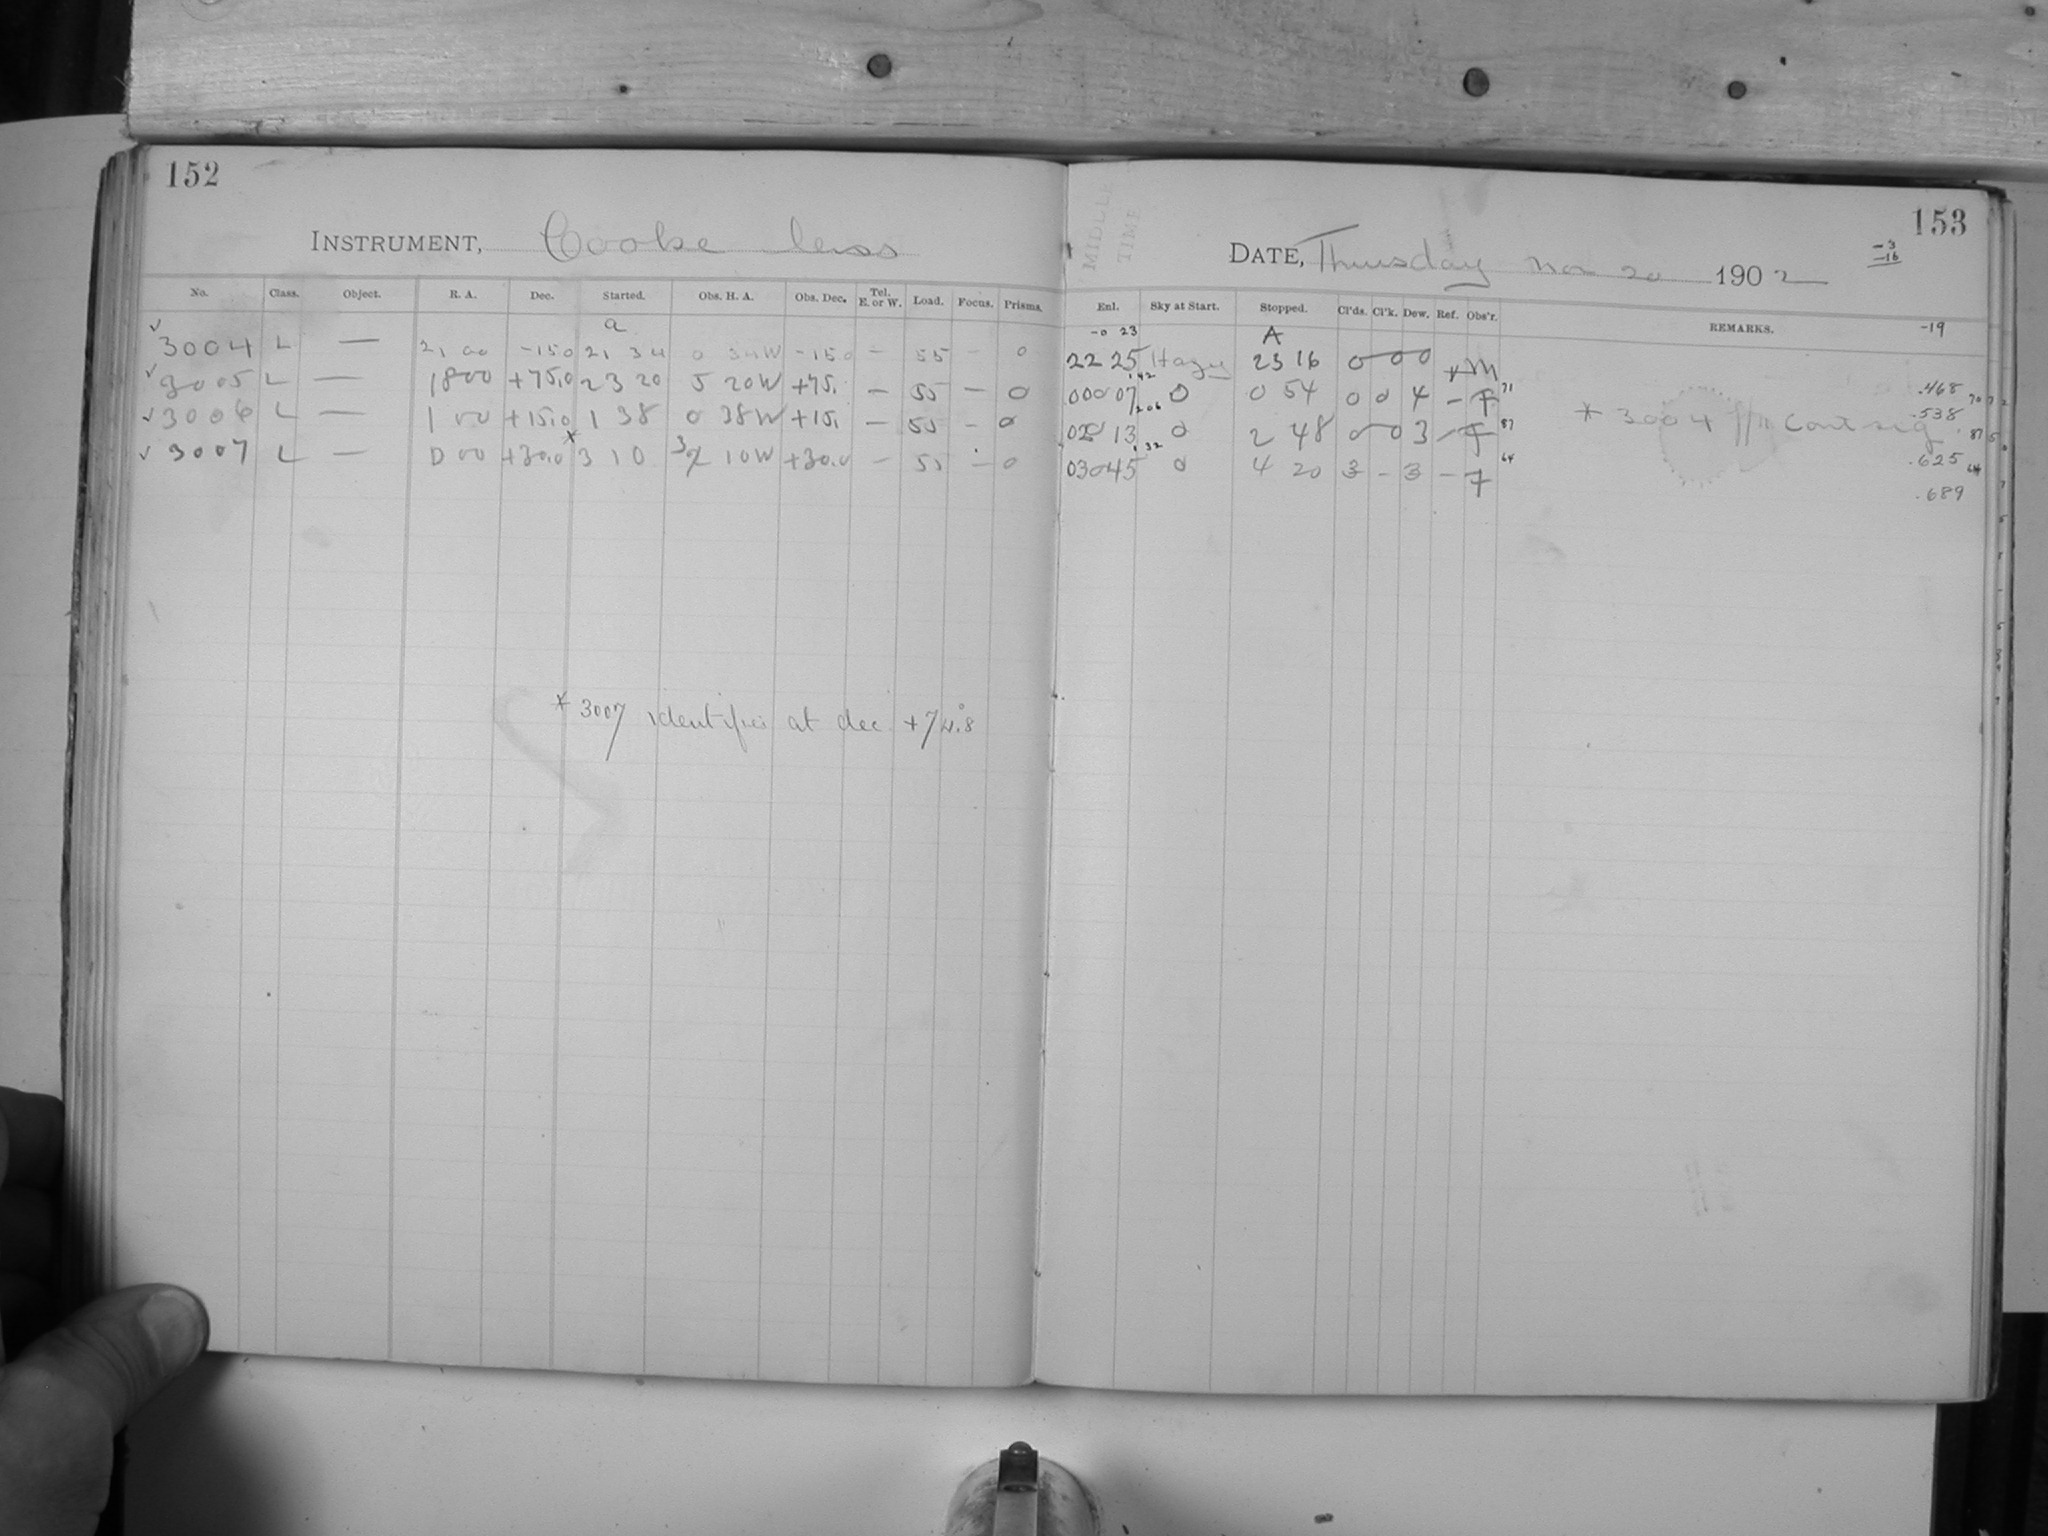 152
INSTRUMENT, Cooke lens
No. Class. Object. R. A. Dec. Started. Obs. H. A. Obs. Dec. Tel. E. or W. Load. Focus. Prisms.
a
✓ 3004 L — 21 00 -15.0 21 34 0 34W -15.0 — 55 — 0
✓ 3005 L — 18 00 +75.0 23 20 5 20W +75. — 55 — 0
✓ 3006 L — 1 00 +15.0 1 38 0 38W +15. — 55 — 0
✓ 3007 L — 0 00 +30.0 * 3 10 3 10W +30.0 — 55 — 0
* 3007 identifies at dec. +74.°8
153
MIDDLE
TIME
DATE, Thursday Nov 20 1902
-3
-16
Enl. Sky at Start. Stopped. Cl'ds. Cl'k. Dew. Ref. Obs'r. REMARKS. -19
-0 23 A
22 25 Hazy 23 16 0 0 0 M
.42 71 .468
00 07 0 0 54 0 0 4 — F
.206 87 * 3004 cont seq .538
02 13 0 2 48 0 0 3 — F
.32 64 .625
03 45 0 4 20 3 - 3 — F
.689